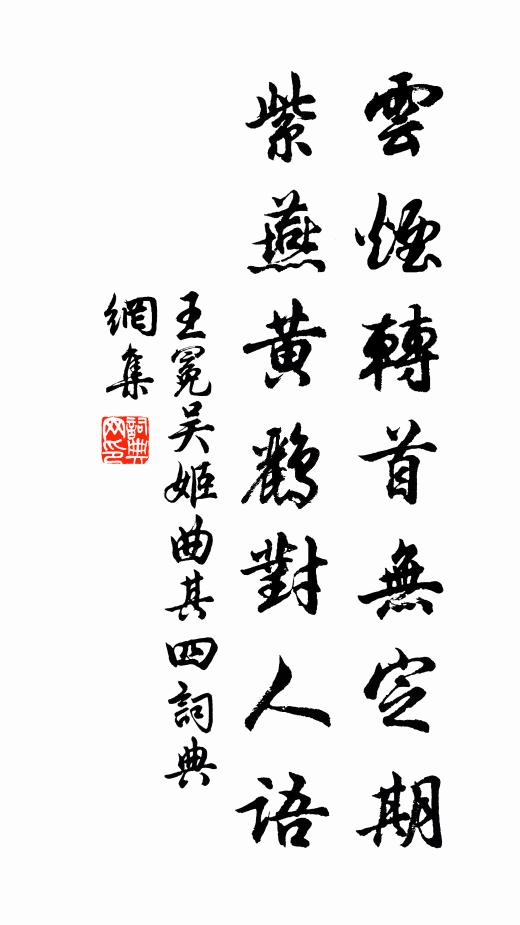 雲煙轉首無定期
紫燕黃鸝對人語
王冕吳姬曲其四詞典
網集
詞典網印